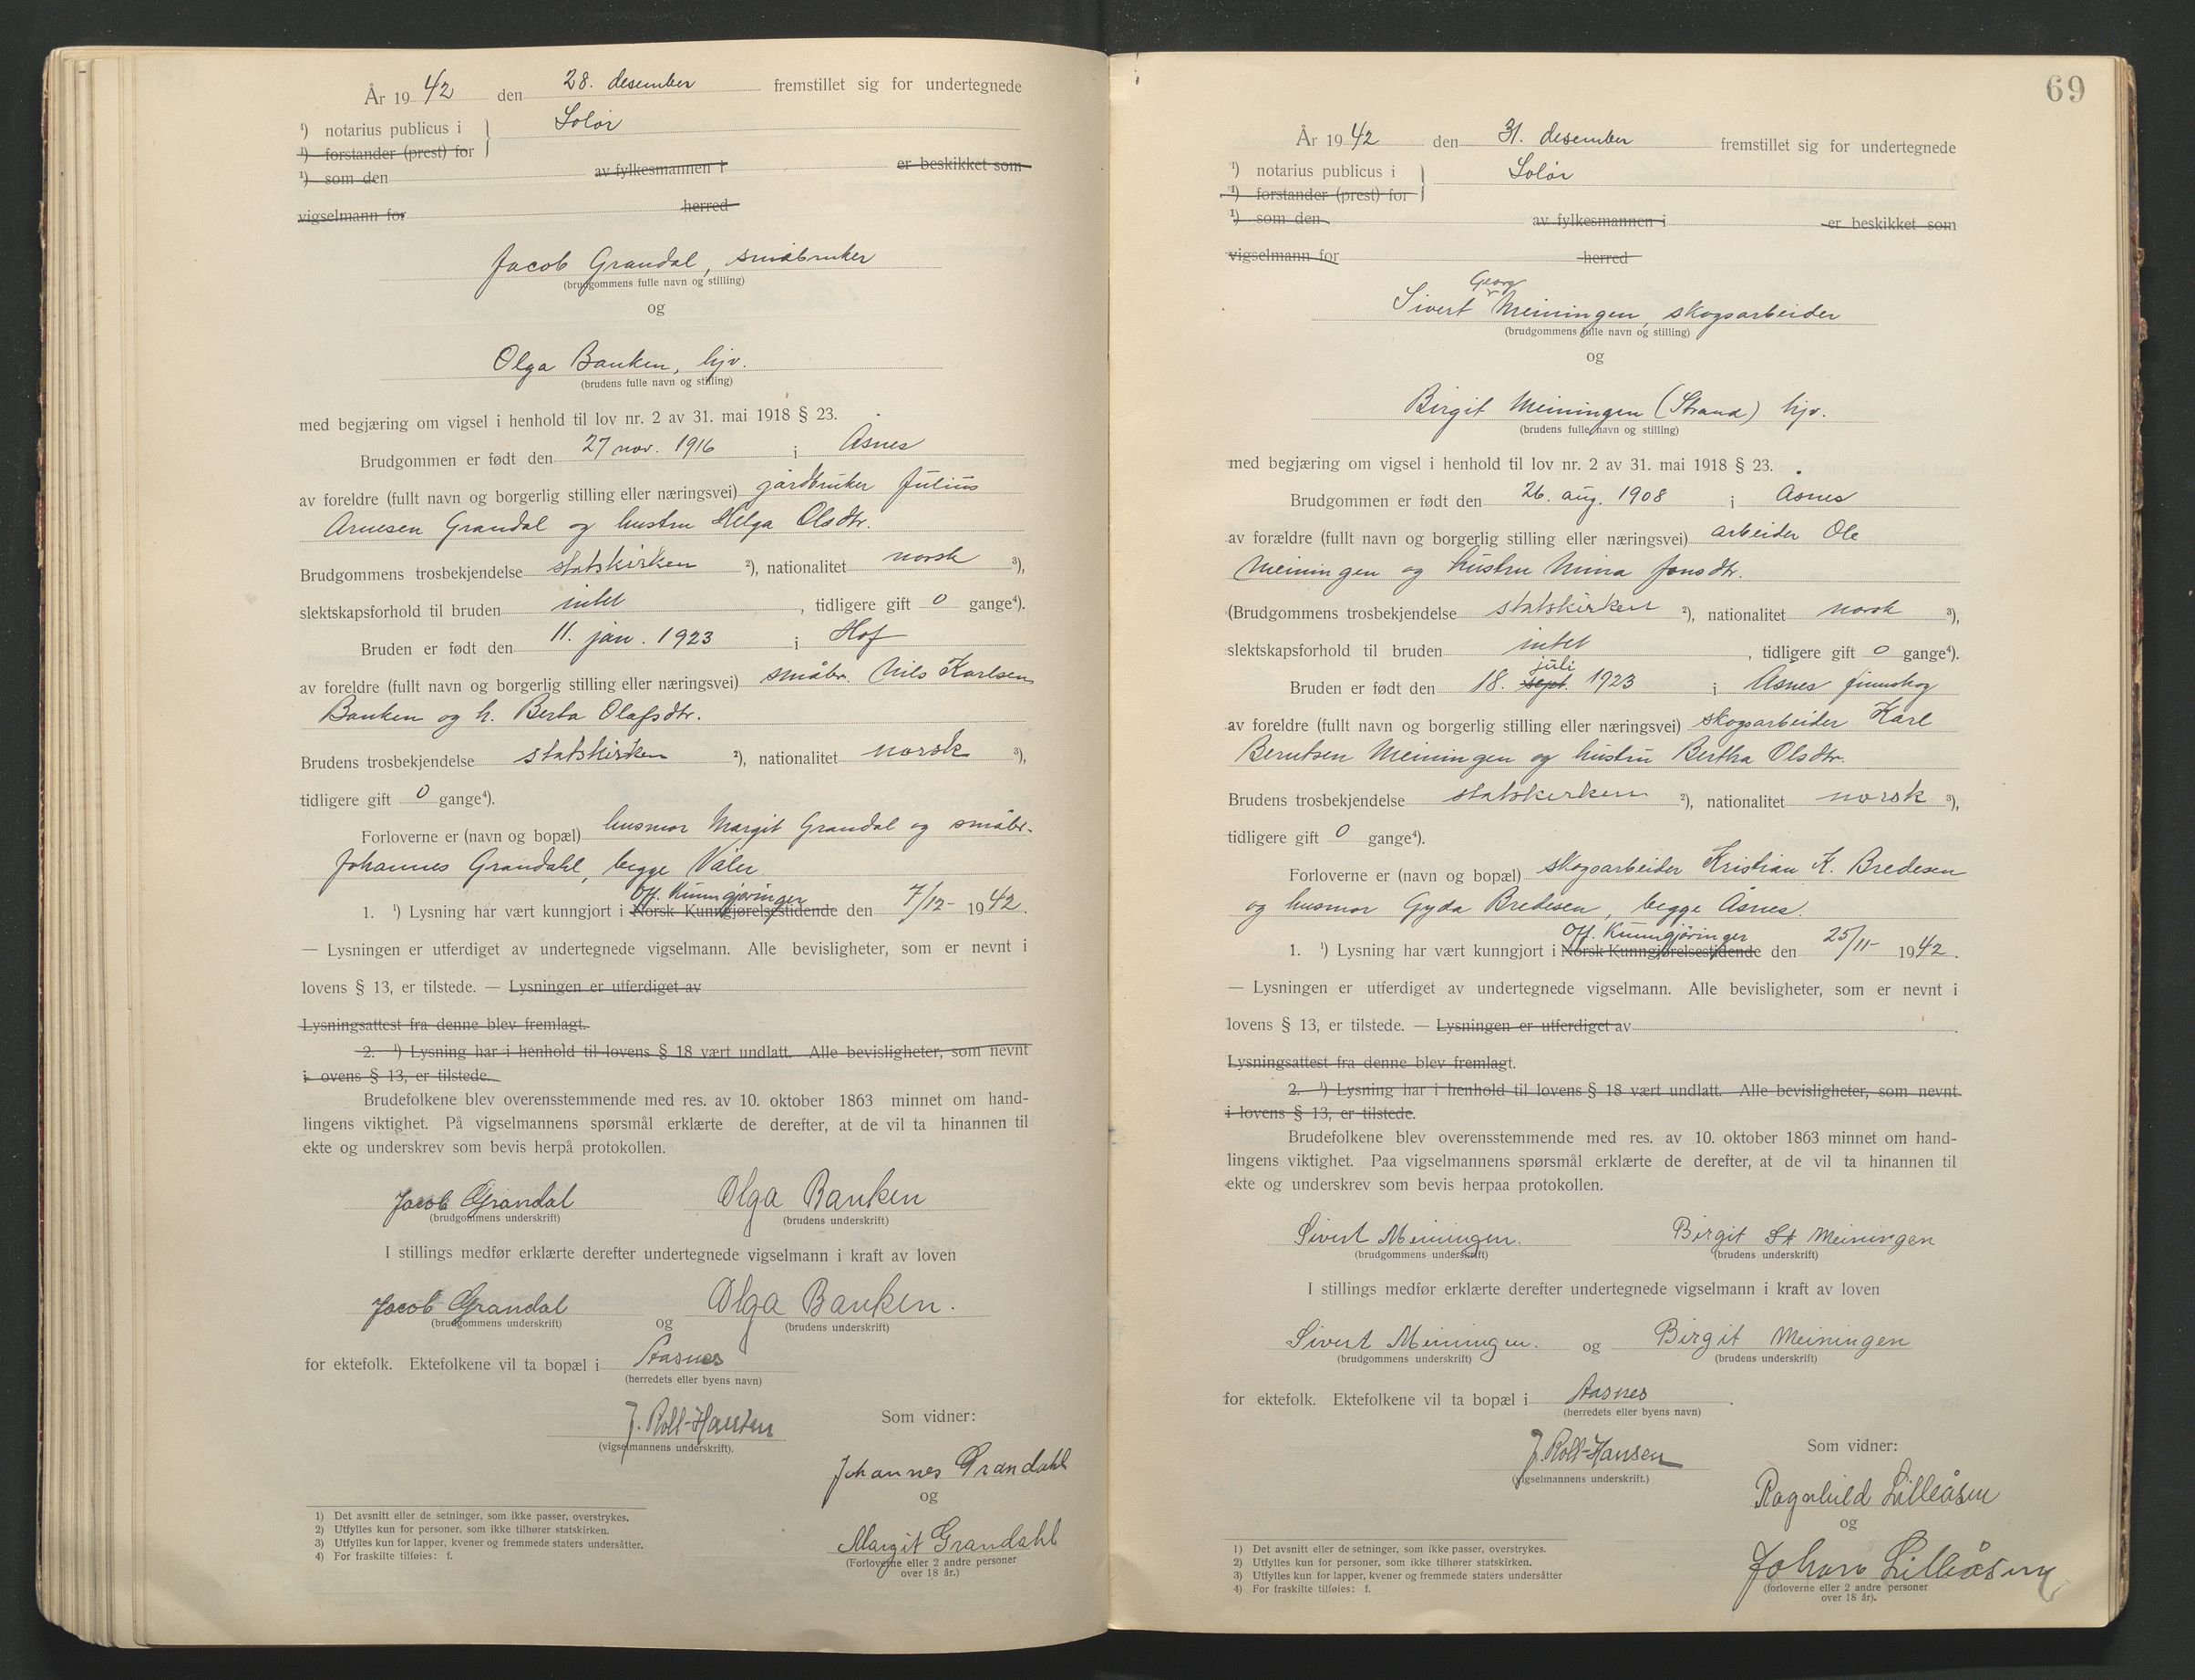 År 1942 den 28. desember fremstillet sig for undertegnede
¹) notarius publicus i } Solør
¹) forstander (prest) for
¹) som den av fylkesmannen i er beskikket som
vigselmann for herred
Jacob Grandal, småbruker
(brudgommens fulle navn og stilling)
og
Olga Banken, hjv.
(brudens fulle navn og stilling)
med begjæring om vigsel i henhold til lov nr. 2 av 31. mai 1918 § 23.
Brudgommen er født den 27 nov. 1916 i Åsnes
av foreldre (fullt navn og borgerlig stilling eller næringsvei) gårdbruker Julius
Arnesen Grandal og hustru Helga Olsdtr.
Brudgommens trosbekjendelse statskirken ²), nationalitet norsk ³),
slektskapsforhold til bruden intet, tidligere gift 0 gange⁴).
Bruden er født den 11. jan. 1923 i Hof
av foreldre (fullt navn og borgerlig stilling eller næringsvei) småbr. Nils Karlsen
Banken og h. Berta Olafsdtr.
Brudens trosbekjendelse statskirken ²), nationalitet norsk ³),
tidligere gift 0 gange⁴).
Forloverne er (navn og bopæl) husmor Margit Grandal og småbr.
Johannes Grandahl, begge Våler
Off. Kunngjøringer
1. ¹) Lysning har vært kunngjort i Norsk Kunngjørelsestidende den 7/12- 1942.
— Lysningen er utferdiget av undertegnede vigselmann. Alle bevisligheter, som er nevnt i
lovens § 13, er tilstede. — Lysningen er utferdiget av
Lysningsattest fra denne blev fremlagt.
2. ¹) Lysning har i henhold til lovens § 18 vært undlatt. Alle bevisligheter, som nevnt
i ovens § 13, er tilstede.
Brudefolkene blev overensstemmende med res. av 10. oktober 1863 minnet om hand-
lingens viktighet. På vigselmannens spørsmål erklærte de derefter, at de vil ta hinannen til
ekte og underskrev som bevis herpå protokollen.
Jacob Grandal Olga Banken
(brudgommens underskrift) (brudens underskrift)
I stillings medfør erklærte derefter undertegnede vigselmann i kraft av loven
Jacob Grandal og Olga Banken.
(brudgommens underskrift) (brudens underskrift)
for ektefolk. Ektefolkene vil ta bopæl i Aasnes
(herredets eller byens navn)
J. Roll-Hansen
(vigselmannens underskrift).
Som vidner:
Johannes Grandahl
og
Margit Grandahl
(Forloverne eller 2 andre personer
over 18 år.)
1) Det avsnitt eller de setninger, som ikke passer, overstrykes.
2) Utfylles kun for personer, som ikke tilhører statskirken.
3) Utfylles kun for lapper, kvener og fremmede staters undersåtter.
4) For fraskilte tilføies: f.
69
År 1942 den 31. desember fremstillet sig for undertegnede
¹) notarius publicus i } Solør
¹) forstander (prest) for
¹) som den av fylkesmannen i er beskikket som
vigselmann for herred
Georg
Sivert Meiningen, skogsarbeider
(brudgommens fulle navn og stilling)
og
Birgit Meiningen (Strand) hjv.
(brudens fulle navn og stilling)
med begjæring om vigsel i henhold til lov nr. 2 av 31. mai 1918 § 23.
Brudgommen er født den 26. aug. 1908 i Åsnes
av forældre (fullt navn og borgerlig stilling eller næringsvei) arbeider Ole
Meiningen og hustru Mina Jonsdtr.
(Brudgommens trosbekjendelse statskirken ²), nationalitet norsk ³),
slektskapsforhold til bruden intet, tidligere gift 0 gange⁴).
juli
Bruden er født den 18. sept. 1923 i Åsnes finnskog
av foreldre (fullt navn og borgerlig stilling eller næringsvei) skogsarbeider Karl
Berntsen Meiningen og hustru Bertha Olsdtr.
Brudens trosbekjendelse statskirken ²), nationalitet norsk ³),
tidligere gift 0 gange⁴).
Forloverne er (navn og bopæl) skogsarbeider Kristian K. Bredesen
og husmor Gyda Bredesen, begge Åsnes.
Off. Kunngjøringer
1. ¹) Lysning har vært kunngjort i Norsk Kunngjørelsestidende den 25/11- 1942.
— Lysningen er utferdiget av undertegnede vigselmann. Alle bevisligheter, som er nevnt i
lovens § 13, er tilstede. — Lysningen er utferdiget av .
Lysningsattest fra denne blev fremlagt.
2. ¹) Lysning har i henhold til lovens § 18 vært undlatt. Alle bevisligheter, som nevnt.
i lovens § 13, er tilstede.
Brudefolkene blev overensstemmende med res. av 10. oktober 1863 minnet om hand-
lingens viktighet. Paa vigselmannens spørsmål erklærte de derefter, at de vil ta hinannen til
ekte og underskrev som bevis herpaa protokollen.
Sivert Meiningen. Birgit St Meiningen
(brudgommens underskrift) (brudens underskrift)
I stillings medfør erklærte derefter undertegnede vigselmann i kraft av loven
Sivert Meiningen. og Birgit Meiningen
(brudgommens underskrift) (brudens underskrift)
for ektefolk. Ektefolkene vil ta bopæl i Aasnes.
(herredets eller byens navn)
J. Roll-Hansen
(vigselmannens underskrift.)
Som vidner:
Ragnhild Lilleåsen
og
Johan Lilleåsen
(forloverne eller 2 andre personer
over 18 år).
1) Det avsnitt eller de setninger, som ikke passer, overstrykes.
2) Utfylles kun for personer, som ikke tilhører statskirken.
3) Utfylles kun for lapper, kvener og fremmede staters undersåtter
4) For fraskilte tilføies: f.